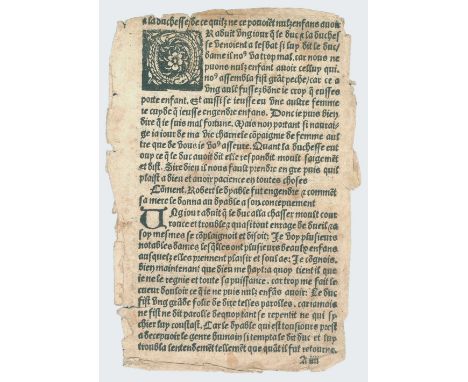 a la duchesse/ de ce quilz ne pouoiẽt nulz enfans auoir
OR aduit vng iour q̃ le duc ⁊ la duches
se venoient a lesbat si luy dit le duc/
dame il noꝰ va trop mal/ car nous ne
pouons nulz enfans auoir/ celluy qui
noꝰ assembla fist grãt peche/ car ce a
vng aultre fussez dõnee ie croy q̃ eusses
porte enfant. Et aussi se ieusse eu vne aultre femme
ie cuyde q̃ ieusse engendre enfans. Donc ie puis bien
dire q̃ ie suis mal fortune. Mais non portant si nauray
ie ia iour de ma vie charnelle cõpaigne de femme aul
tre que de vous ie voꝰ asseure. Quant la duchesse eut
ouy ce q̃ le duc auoit dit elle respondit moult saigemẽt
et dist. Sire dieu il nous fault prendre en gre puis quil
plaist a dieu et auoir pacience en toutes choses
Cõment Robert le dyable fut engendre ⁊ commẽt
sa mere le donna au dyable a son conceuement
VNg iour aduit q̃ le duc alla chasser moult cour
rouce et trouble/ quasi tout enrage de dueil/ ⁊ a
soy mesmes se cõplaignoit et disoit: Je voy plusieurs
notables dames lesq̃lles ont plusieurs beaulx enfans
ausquelz elles prennent plaisir et soulas: Je cõgnois
bien maintenant que dieu me hayt: a quoy tient il que
ie ne le regnie et toute sa puissance. car trop me fait le
cueur douloir ce q̃ ie ne puis nulz enfãs auoir: Le duc
fist vng grãde folie de dire telles parolles. car iamais
ne fist ne dit parolle dequoy tant se repentit ne qui sy
chier luy coustast. Car le dyable qui est tousiours prest
a decepuoir le genre humain si tempta le dit duc et luy
troubla lentendemẽt tellemẽt que quãt il fut retourne
A iiii